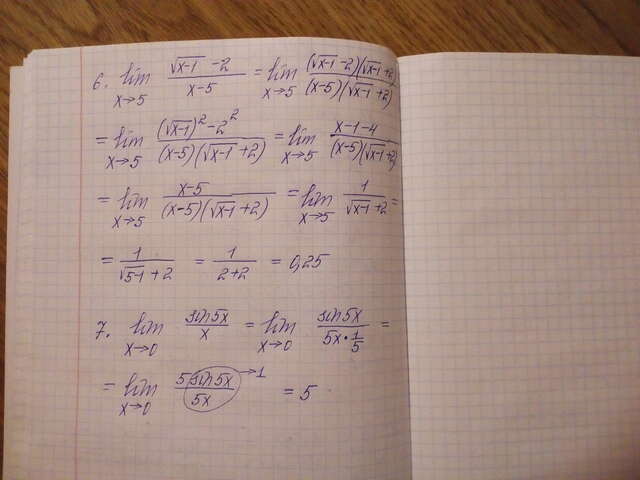 6. lim x→5 (√x-1 -2)/(x-5) = lim x→5 ((√x-1 -2)(√x-1 +2))/((x-5)(√x-1 +2))
= lim x→5 ((√x-1)² -2²)/((x-5)(√x-1 +2)) = lim x→5 (x-1-4)/((x-5)(√x-1 +2))
= lim x→5 (x-5)/((x-5)(√x-1 +2)) = lim x→5 1/(√x-1 +2) =
= 1/(√5-1 +2) = 1/(2+2) = 0,25
7. lim x→0 sin5x/x = lim x→0 sin5x/(5x·1/5) =
= lim x→0 5sin5x/5x →1 = 5